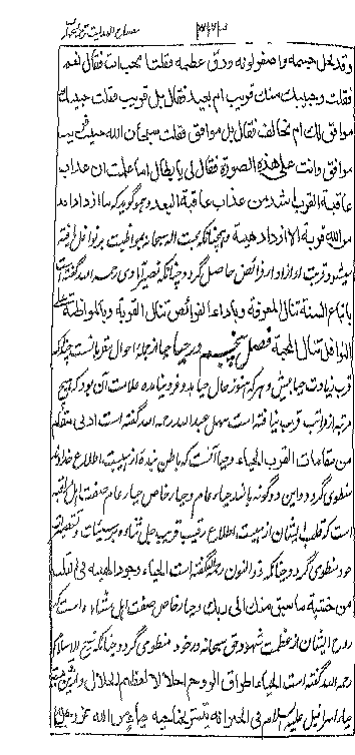 وقد نحل جسمه واصفر لونه ودق عظمه فقلت أمحب انت فقال نعم
فقلت وحبيبك منك قريب ام بعيد فقال بل قريب فقلت حبيبك
موافق لك ام مخالف فقال بل موافق فقلت سبحان الله حبيبك قريب
موافق وانت على هذه الصورة فقال لى يا بطال اما علمت ان عذاب
عاقبة القرب اشد من عذاب عاقبة البعد و گوید که ما ازداد احد
من الله قربة الا ازداد هيبة وهمچنانکه محبت الله سبحانه بمواظبت بر نوافل یافته
میشود قربت او از اداء فرائض حاصل گردد چنانکه رحمه الله گفته است
باتباع السنة تنال المعرفة وباداء الفرائض تنال القربة وبالمواظبة على
النوافل تنال المحبة فصل پنجم در حیا حیا از جمله احوال مقربانست چندانکه
قرب زیادت حیا بیش و هر که هنوز حال حیا بدو فرو نیامده علامت آن بود که هیچ
مرتبه از مراتب قرب نیافته است سهل عبد الله رحمه الله گفته است ادنى مقام
من مقامات القرب الحياء وحیا آنست که باطن بنده از هیبت اطلاع خداوند
منطوی گردد واین دو گونه باشد حیاء عام و حیاء خاص حیاء عام صفت اهل مراقبه
است که قلب ایشان از هیبت اطلاع رقیب قریب جل ثناؤه بر سیئات و تقصیر
خود منطوی گردد چنانکه ذو النون رحمه الله گفته است الحياء وجود الهيبة فى القلب
من خشية ما سبق منك الى ربك وحیاء خاص صفت اهل مشاهده است که
روح ایشان از عظمت شهود حق سبحانه در خود منطوی گردد چنانکه شیخ الاسلام
رحمه الله گفته است الحياء اطراق الروح اجلالا لعظيم الجلال و ازین
حیاء اسرافیل علیه السلام فى الخبر انه يتستر بجناحيه حياء من الله عز وجل